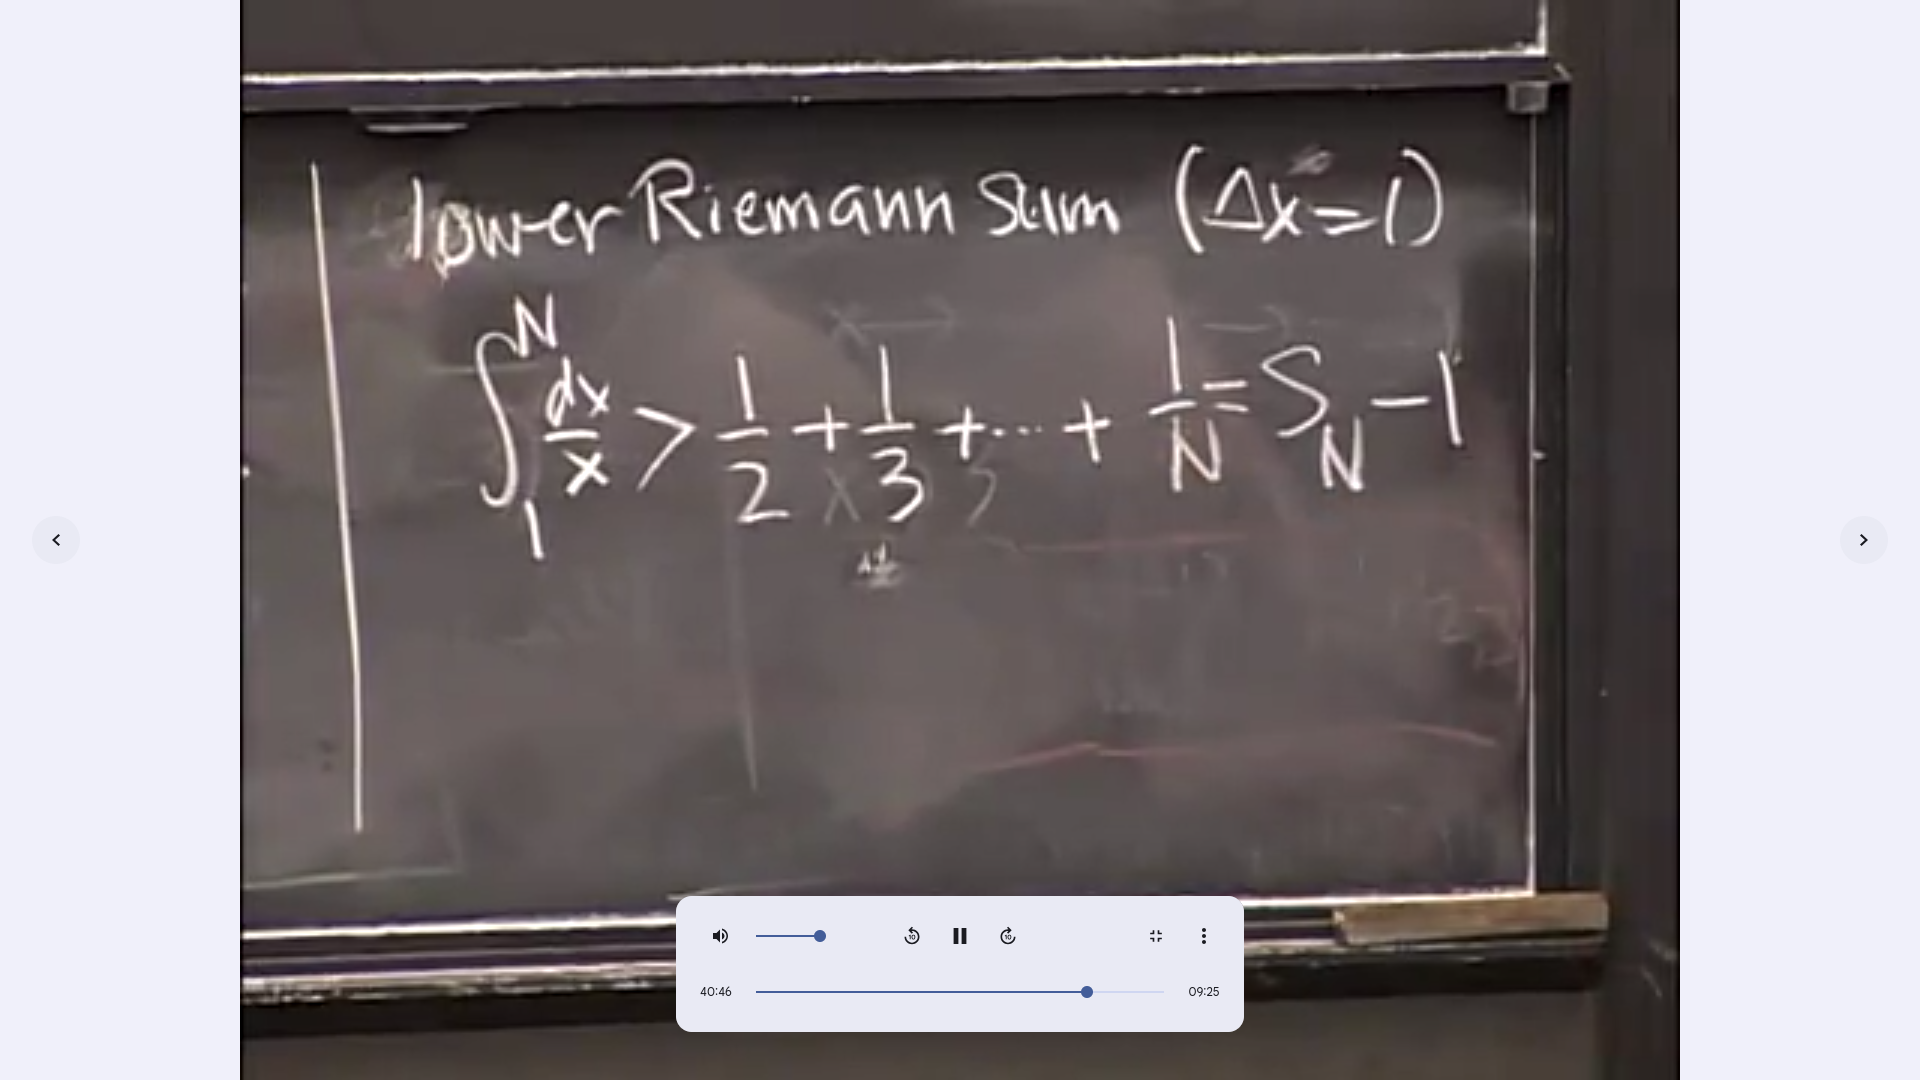 lower Riemann Sum (Δx=1)
∫₁ᴺ dx/x > 1/2 + 1/3 + ... + 1/N = S_N - 1
40:46
09:25